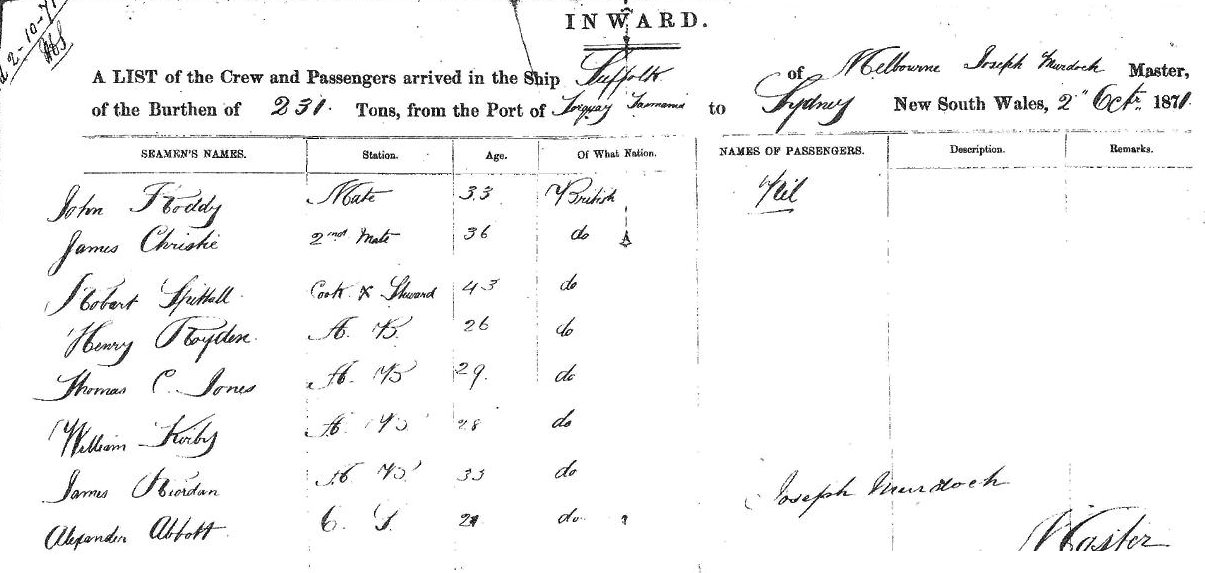 2-10-71
INWARD.
A LIST of the Crew and Passengers arrived in the Ship Suffolk of Melbourne Joseph Murdoch Master,
of the Burthen of 231. Tons, from the Port of Torquay Tasmania to Sydney New South Wales, 2" Octr. 1871.
SEAMEN'S NAMES. Station. Age. Of What Nation. NAMES OF PASSENGERS. Description. Remarks.
John Roddy Mate 33 British Nil
James Christie 2nd Mate 36 do
Robart Spittall Cook & Steward 43 do
Henry Royden. A. B. 26 do
Thomas C. Jones A. B 29. do
William Kirby A. B 28 do
James Riordan A. B 33 do
Joseph Murdoch
Alexander Abbott do.
Master